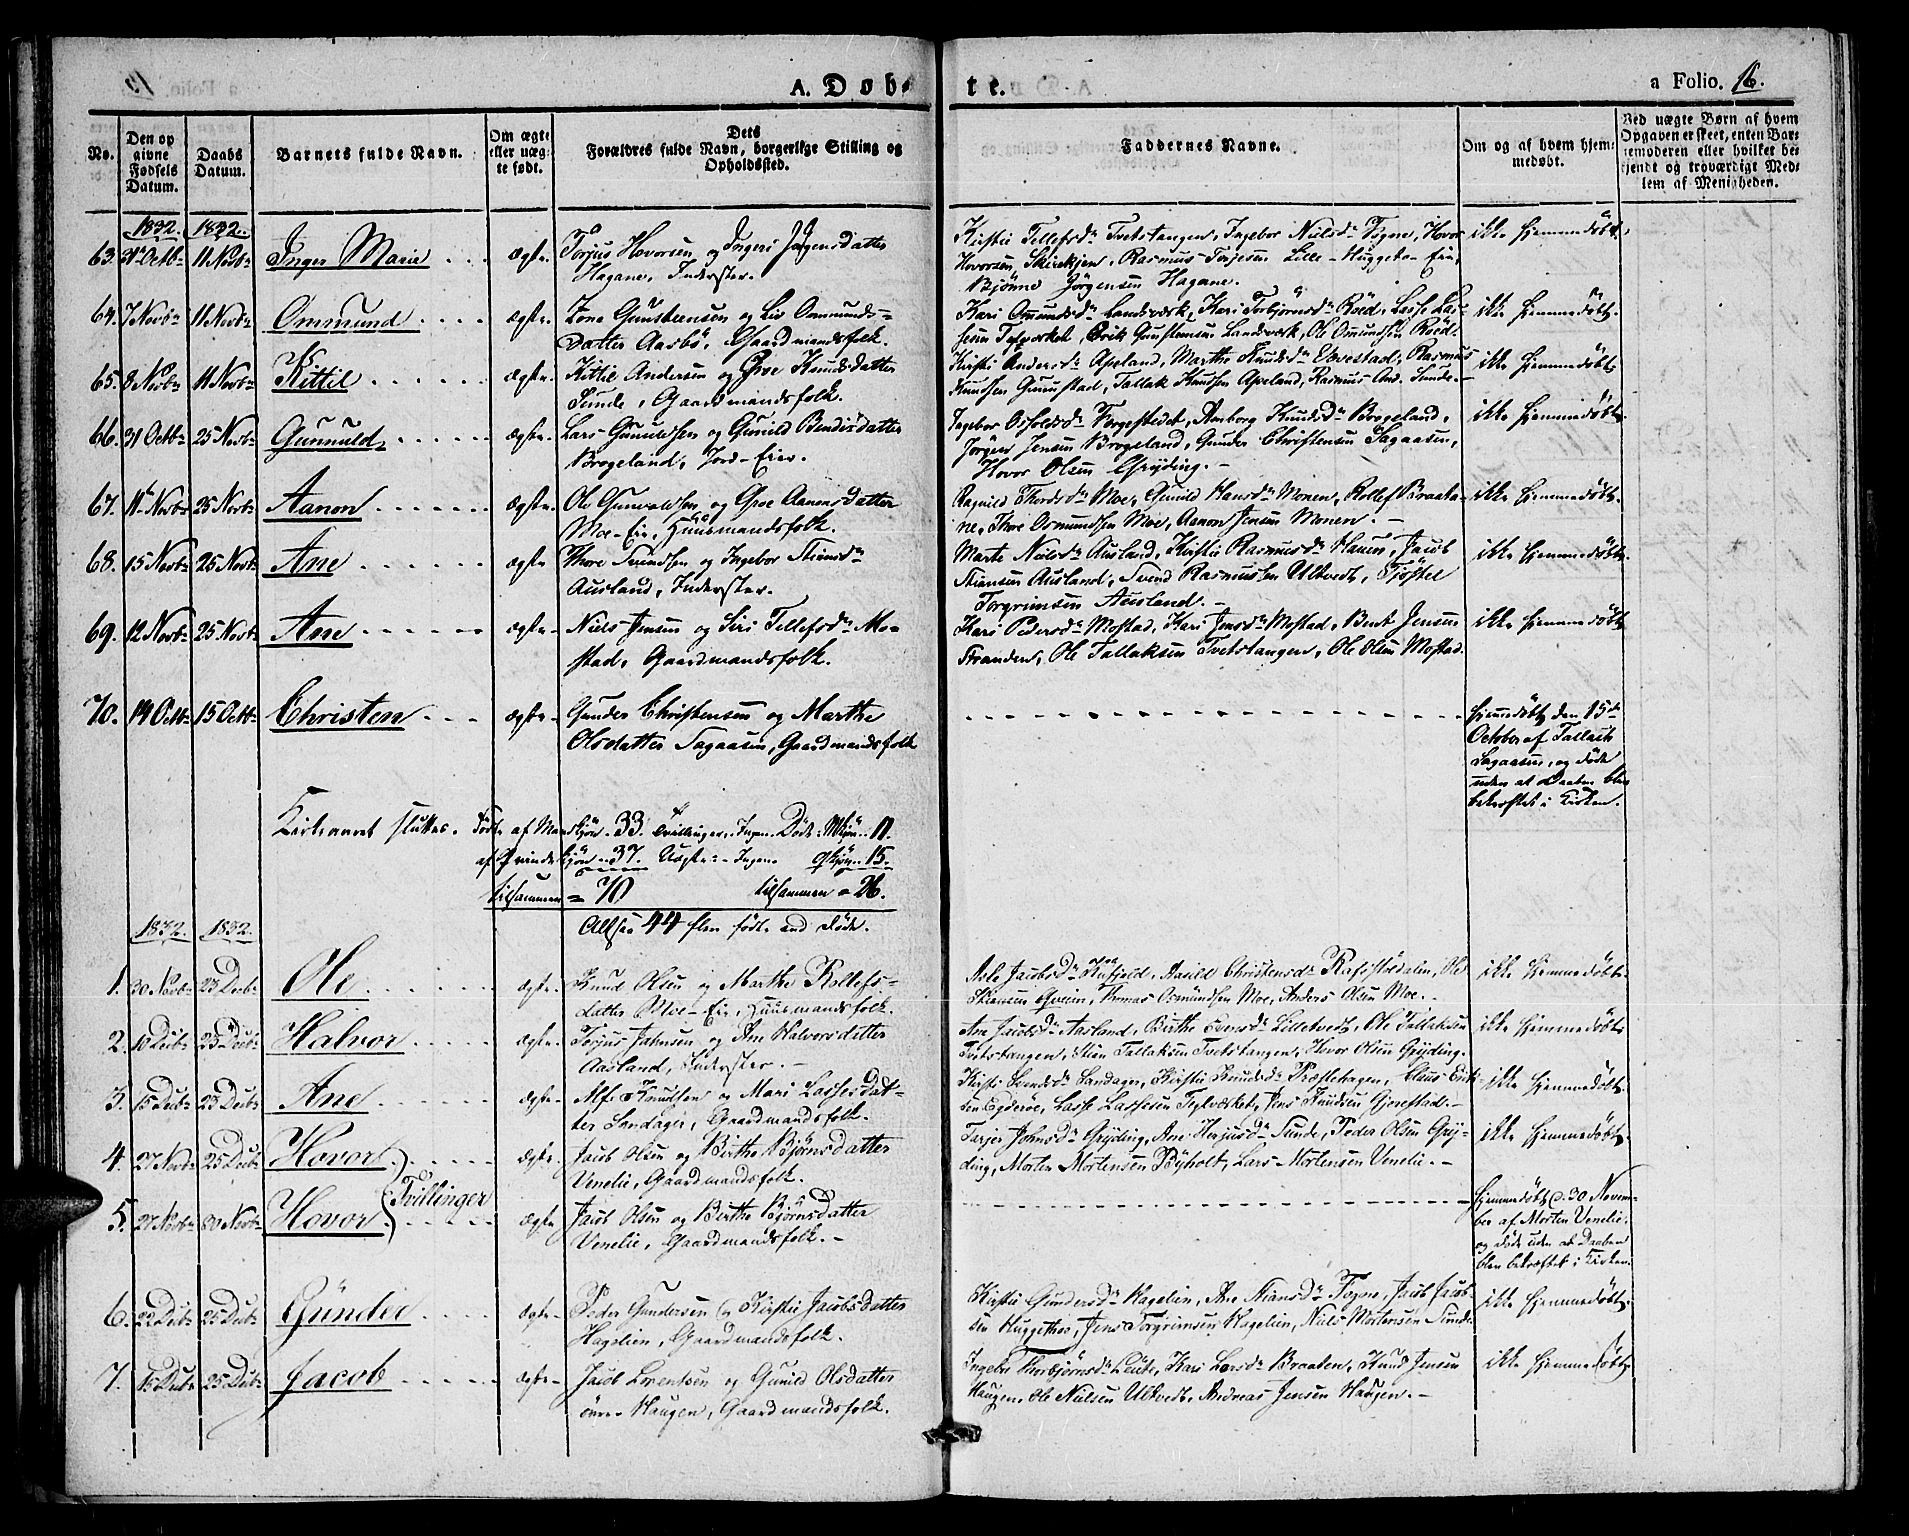 A. Døbte.
a Folio. 16.
No.
Den opgivne Fødsels Datum.
Daabs Datum.
Barnets fulde Navn.
Om ægte eller uægte født.
Dets Forældres fulde Navn, borgerlige Stilling og Opholdssted.
Faddernes Navne.
Om og af hvem hjemmedøbt.
Ved uægte Børn af hvem Opgaven er skeet, enten Barnemoderen eller hvilket bekjendt og troværdigt Medlem af Menigheden.
1832. 1832.
63. Octb: 11 Novb: Inger Marie ægte. Torjus Hovorsen og Ingeri Jørgensdatter
Hagane, Inderster.
Kirstie Tellefsd: Tvetstangen, Ingebor Nielsd: Togne, Hovor
Hovorsen, Rasmus Terjesen Lille-Huggeto-Eie,
Bjönne Jörgensen Hagane.
ikke hjemmedøbt.
64. 7 Novb: 11 Novb: Ommund ægte. Gunstensen og Liv Ommunds-
datter Aasbö, Gaardmandsfolk.
Kari Omunds d: Landsværk, Kari Torbjörnsd: Röed, Lasse Las-
sesen Teglverket, Erik Gunstensen Landsværk, Ole Omundsen Röed.
ikke hjemmedøbt.
65. 8 Novb: 11 Novb: Kittil ægte. Kittil Andersen og Groe Knudsdatter
Sunde, Gaardmandsfolk.
Kirsti Andersd: Apeland, Marthe Knudsd: Ebvestad, Rasmus
Knudsen Gunustad, Tallak Knudsen Apeland, Rasmus And. Sunde.
ikke hjemmedøbt.
66. 31 Octb: 25 Novb: Gunnuld ægte. Lars Gunuldsen og Gunild Bendixdatter
Brogeland, Jord-Eier.
Ingebor Osfoldsd: Torgestedet, Amborg Knudsd: Brogeland,
Jörgen Jensen Brogeland, Gunder Christensen Sagaasen,
Hovor Olsen Gryding.
ikke hjemmedøbt.
67. 11 Novb: 25 Novb: Aanon ægte. Ole Gunvaldsen og Groe Aanonsdatter
Moe-Eie, Huusmandsfolk.
Ragnild Thordsd: Moe, Gunild Hansd: Monen, Rollef Braata-
ne, Thore Osmundsen Moe, Aanon Jensen Monen.
ikke hjemmedøbt.
68. 15 Novb: 25 Novb: Ane ægte. Thore Svendsen og Ingebor Stiansd:
Ausland, Inderster.
Marte Nielsd: Ausland, Kirstie Rasmusd: Hauen, Jacob
Stiansen Ausland, Svend Rasmussen Ulltvedt, Tjöstel
Torgrimsen Ausland.
ikke hjemmedøbt.
69. 12 Novb: 25 Novb: Ane ægte. Niels Jensen og Siri Tellefsd: Mo-
stad, Gaardmandsfolk.
Kari Pedersd: Mostad, Kari Jensd: Mostad, Bent Jensen
Stranden, Ole Tallaksen Tvetstangen, Ole Olsen Mostad.
ikke hjemmedøbt.
70. 14 Octb: 15 Octb: Christen ægte. Gunder Christensen og Marthe
Olsdatter Sagaasen, Gaardmandsfolk
hjemmedöbt den 15de
October af Tallack
Sagaasen, og döde
uden at Daaben blev
bekræftet i Kirken.
Kirkeaaret sluttes. Födte af Mandkjön: 33. Tvillinger: Ingen. Döde: Mkjön: 11.
af Qvindekjön: 37. Uægte: Ingen. Qkjön: 15.
tilsammen = 70 tilsammen = 26.
Altsaa 44 flere födte end döde.
1832. 1832.
1. 30 Novb: 23 Decb: Ole ægte. Knud Olsen og Marthe Rollefs-
datter Moe-Eie, Huusmandsfolk.
Asle Jacobsd: Aasild Christensd: Ole
Qveim, Thomas Osmundsen Moe, Anders Olsen Moe.
ikke hjemmedøbt.
2. 10 Decb: 23 Decb: Halvor ægte. Torjus Jahnsen og Ane Halvorsdatter
Aasland, Inderster.
Ane Jacobsd: Aasland, Birthe Evensd: Lilletvedt, Ole Tallaksen
Tvetstangen, Stian Tallaksen Tvetstangen, Hovor Olsen Gryding.
ikke hjemmedøbt
3. 15 Decb: 23 Decb: Ane ægte. Alf Knudsen og Mari Lassesdat-
ter Landager, Gaardmandsfolk.
Kirsti Landager, Kirstie Knudsd: Præstehagen, Claus Erik-
sen Egderöe, Lasse Lassesen Teglverket, Jens Knudsen Gjerestad.
ikke hjemmedøbt.
4. 27 Novb: 25 Decb: Hovor ægte. Jacob Olsen og Birthe Bjørnsdatter
Venelie, Gaardmandsfolk.
Tarjer Johnsd: Gryding, Ane Herjusd: Sunde, Peder Olsen Gry-
ding, Morten Mortensen Byholt, Lars Mortensen Venelie.
ikke hjemmedøbt.
Tvillinger
5. 27 Novb: 30 Novb: Hovor ægte. Jacob Olsen og Birthe Bjørnsdatter
Venelie, Gaardmandsfolk.
hjemmedöbt d. 30 Novem-
ber af Morten Venelie,
og döde uden at Daaben
blev bekræftet i Kirken.
6. 22 Decb: 25 Decb: Günder ægte. Peder Gundersen og Kirstie Jacobsdatter
Hagelien, Gaardmandsfolk.
Kirstie Gundersd: Hagelien, Ane Stiansd: Togne, Jacob Jacob-
sen Huggethoe, Jens Torgrimsen Hagelien, Niels Mortensen Sunde.
ikke hjemmedøbt.
7. 15 Decb: 25 Decb: Jacob ægte. Jacob Lorentsen og Gunild Olsdatter
övre Haugen, Gaardmandsfolk.
Ingebor Thorbjörnsd: Kari Larsd: Braaten, Knud Jensen
Haugen, Ole Nielsen Ulltvedt, Andreas Jensen Haugen.
ikke hjemmedøbt.